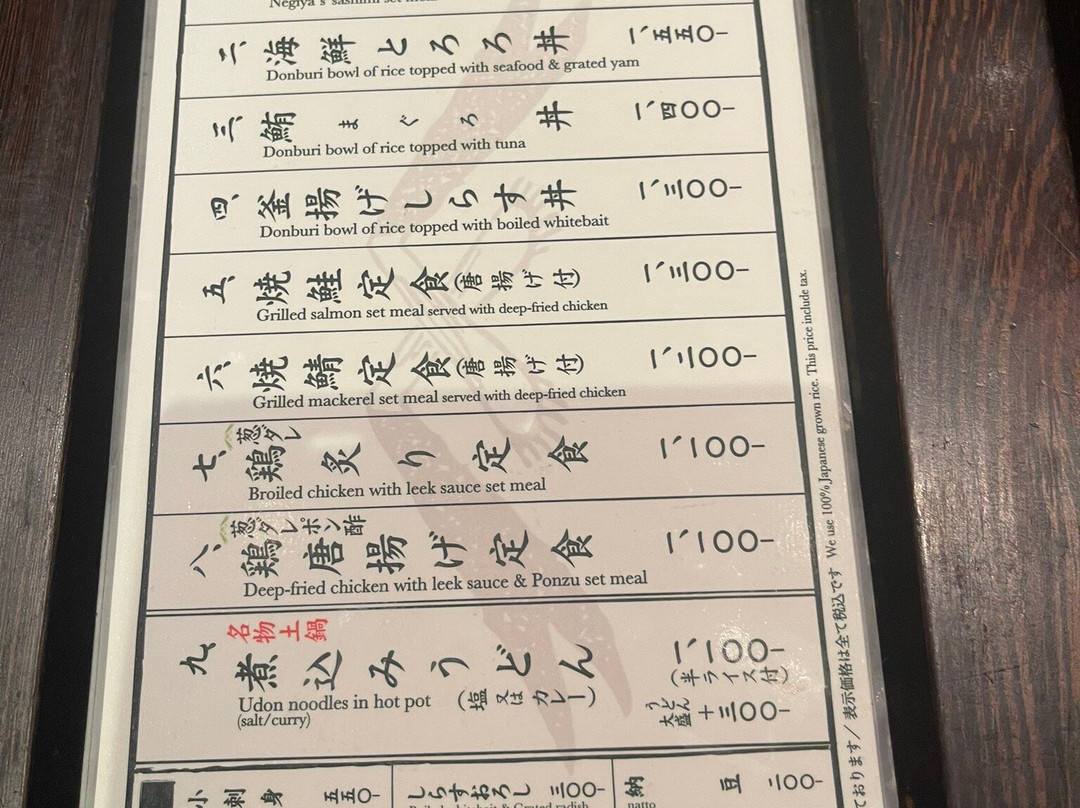 Negiya's sashimi set meal
二、海鮮とろろ丼 一、五五〇-
Donburi bowl of rice topped with seafood & grated yam
三、鮪まぐろ丼 一、四〇〇-
Donburi bowl of rice topped with tuna
四、釜揚げしらす丼 一、三〇〇-
Donburi bowl of rice topped with boiled whitebait
五、焼鮭定食(唐揚げ付) 一、三〇〇-
Grilled salmon set meal served with deep-fried chicken
六、焼鯖定食(唐揚げ付) 一、二〇〇-
Grilled mackerel set meal served with deep-fried chicken
葱ダレ
七、鶏炙り定食 一、一〇〇-
Broiled chicken with leek sauce set meal
葱ダレポン酢
八、鶏唐揚げ定食 一、一〇〇-
Deep-fried chicken with leek sauce & Ponzu set meal
名物土鍋
九、煮込みうどん 一、一〇〇-
(塩又はカレー) (半ライス付)
Udon noodles in hot pot
(salt/curry)
うどん大盛 +三〇〇-
小刺身 五五〇-
しらすおろし 三〇〇-
Boiled whitebait & Grated radish
納豆 二〇〇-
natto
ております/表示価格は全て税込です We use 100% Japanese grown rice. This price include tax.